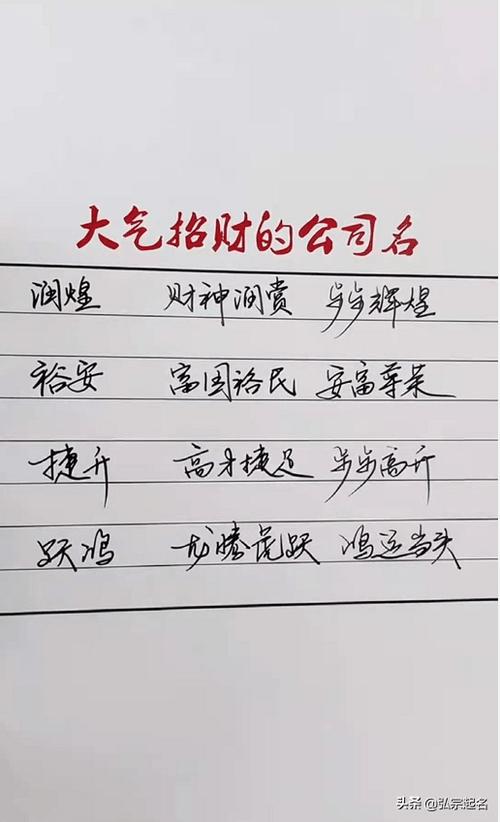 大气招财的公司名
润煌 财神润赏 步步辉煌
裕安 富国裕民 安富尊荣
捷升 高才捷足 步步高升
跃鸿 龙腾虎跃 鸿运当头
头条 @弘宗起名